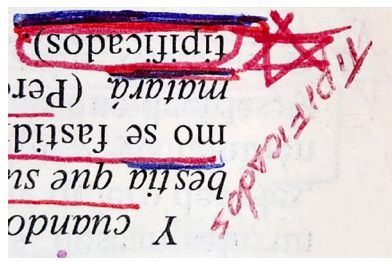 Y cuando
bestia que su
mo se fastidi
matará. (Per
tipificados)
TIPIFICADOS